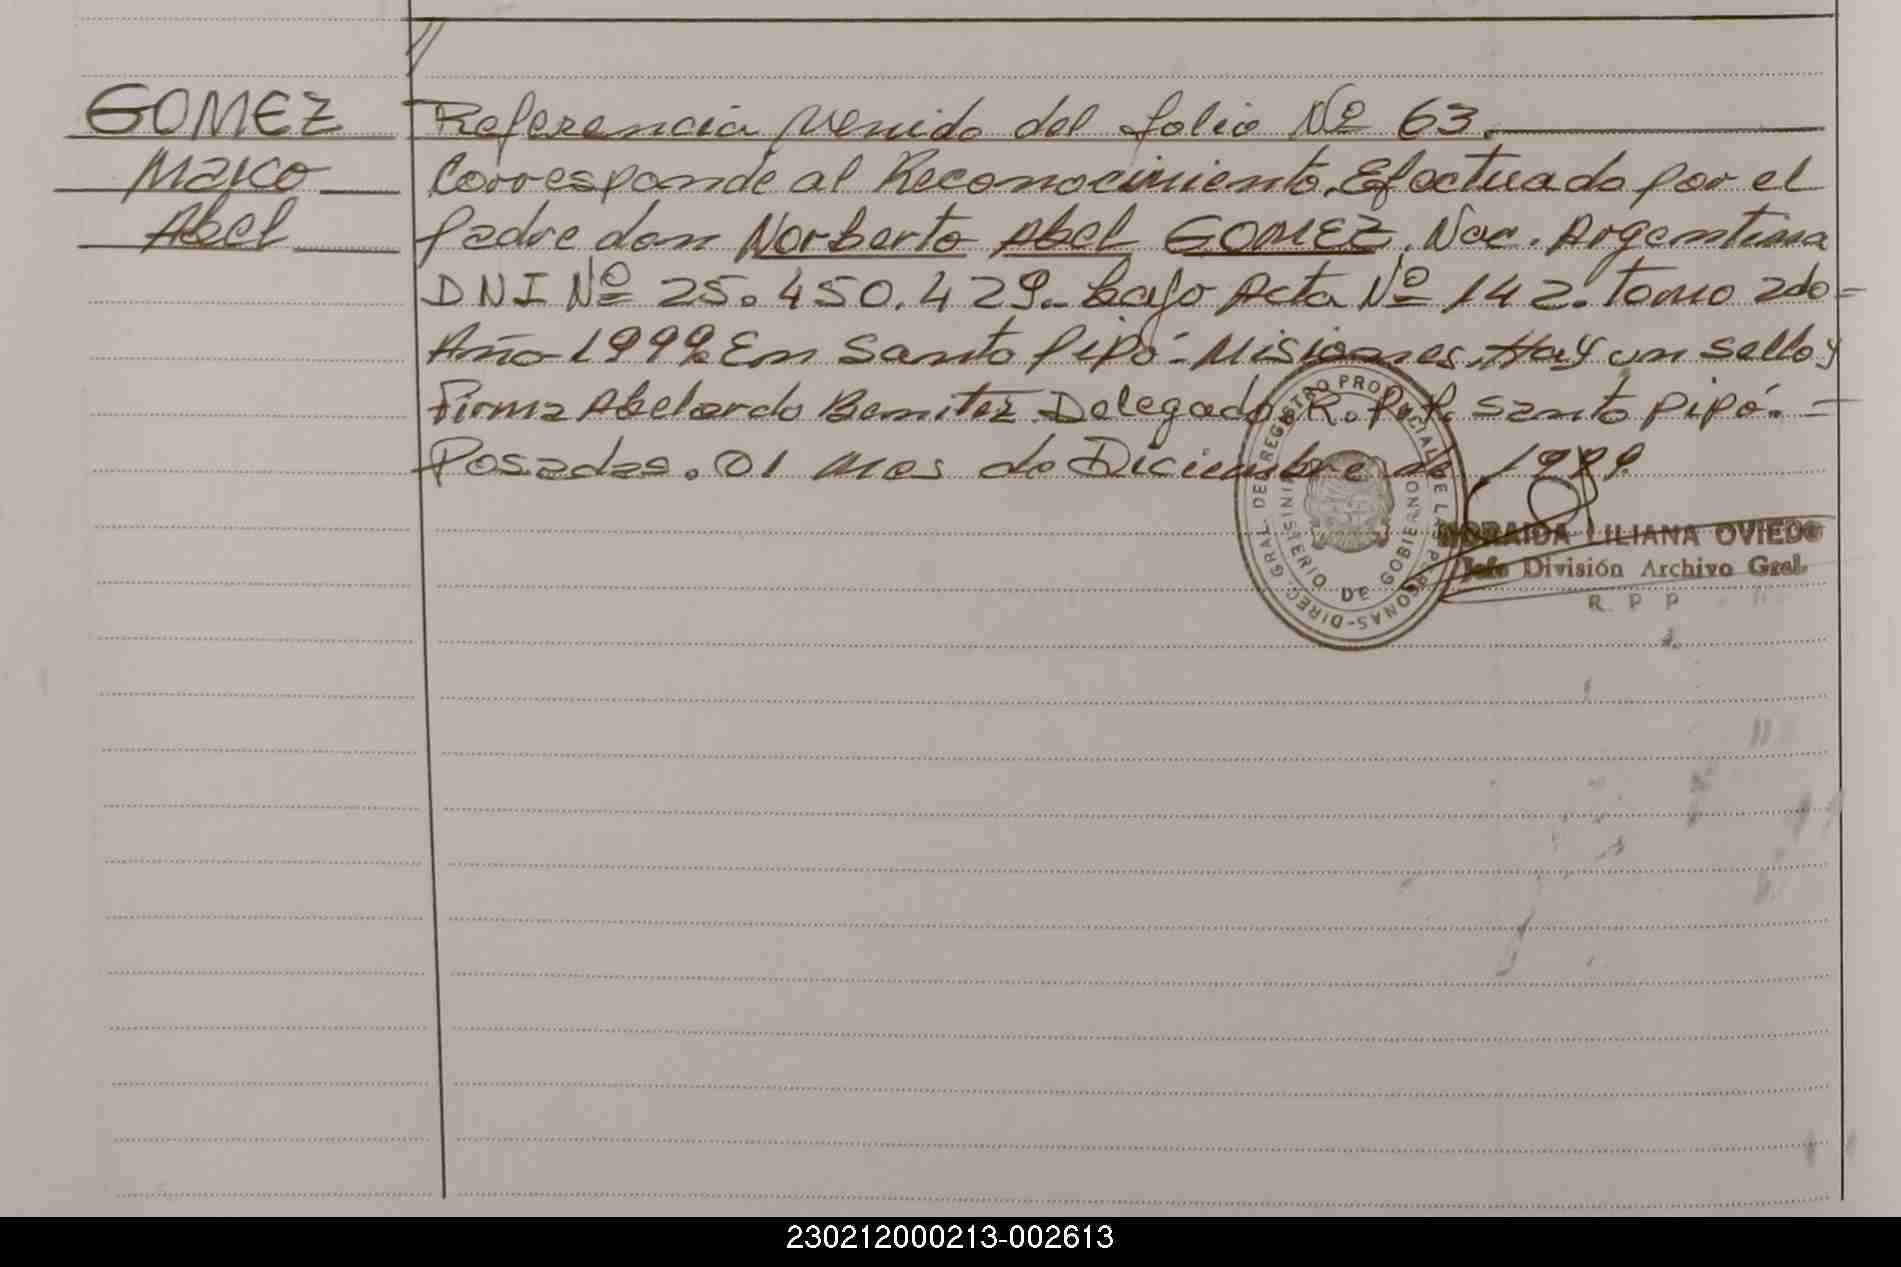 GOMEZ
Marco
Abel
Referencia venido del folio Nº 63.
Corresponde al Reconocimiento, Efectuado por el
padre don Norberto Abel GOMEZ, Nac. Argentina
DNI Nº 25.450.429.- bajo Acta Nº 142. Tomo 2do-
Año 1999. En Santo Pipó - Misiones. Hay un sello y
Firma Abelardo Benitez Delegado R. P. P. Santo Pipó. -
Posadas. 01 Mes de Diciembre de 1999
DIREC. GRAL. DEL REGISTRO PROVINCIAL DE LAS PERSONAS-
MINISTERIO DE GOBIERNO
ZORAIDA LILIANA OVIEDO
Jefe División Archivo Gral.
R P P
230212000213-002613